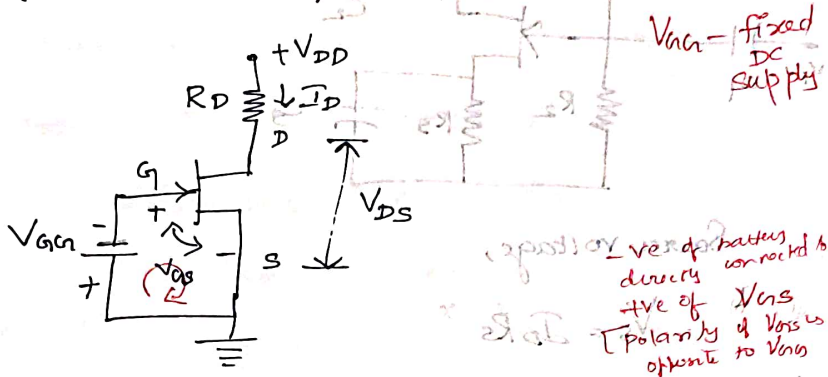 +VDD
RD
↓ID
D
G
+
VGG
-
+
VGS
-
S
VDS
VGG - fixed
DC
supply
-ve of battery
directly connected to
+ve of VGS
[polarity of VGS is
opposite to VGG